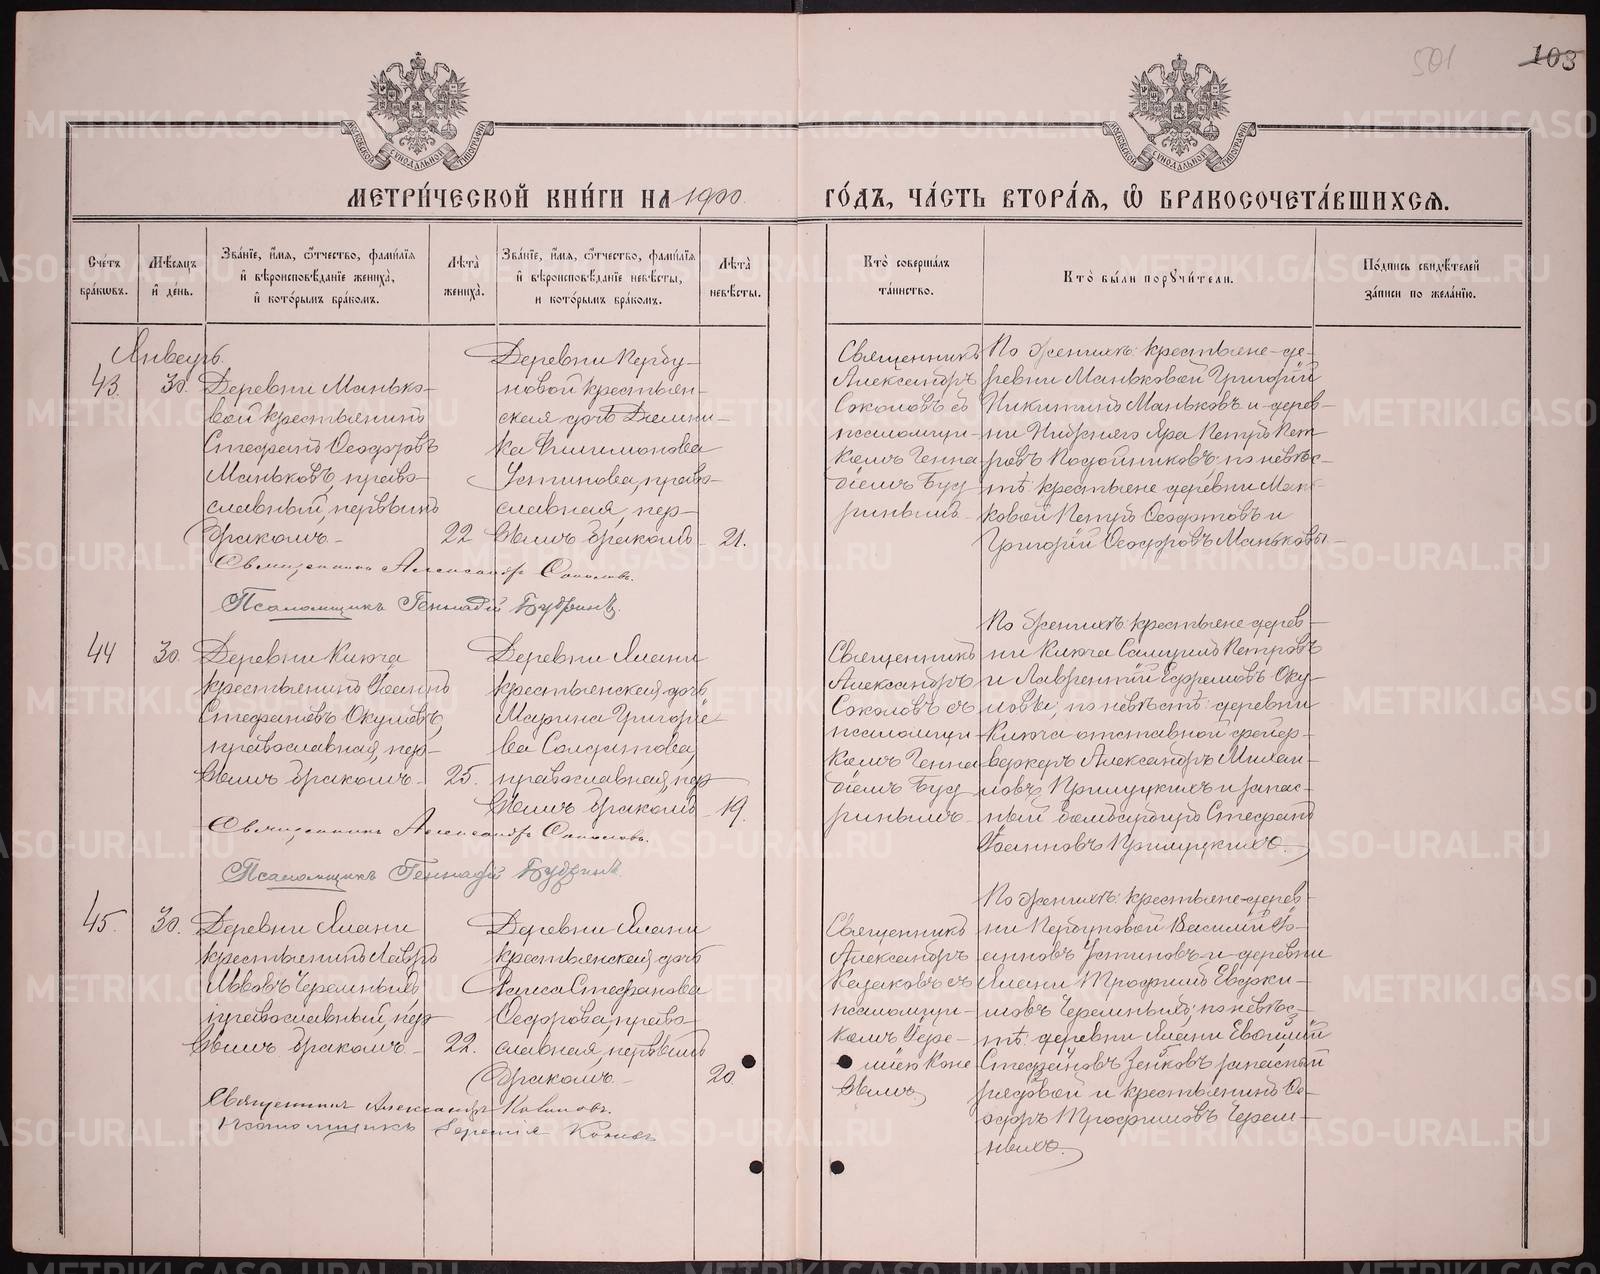 501
103
МЕТРИ́ЧЕСКОЙ КНИ́ГИ НА 1900 ГО́ДЪ, ЧА́СТЬ ВТОРА́Я, Ѽ БРАКОСОЧЕТА́ВШИХСЯ.
Сче́тъ бра́кѡвъ.
Мѣ́сяцъ й де́нь.
Зва́нїе, и́мя, ѻ́тчество, фами́лїя й вѣроисповѣ́данїе жениха̀, й кото́рымъ бра́комъ.
Лѣта̀ жениха̀.
Зва́нїе, и́мя, ѻ́тчество, фами́лїя й вѣроисповѣ́данїе невѣ́сты, и кото́рымъ бра́комъ.
Лѣта̀ невѣ́сты.
Кто̀ соверша́лъ та́инство.
Кто̀ бы́ли порꙋчи́тели.
По́дпись свидѣ́телей за́писи по жела́нїю.
Январь.
43.
30.
Деревни Манько-
вой крестьянинъ
Стефанъ Ѳеодоровъ
Маньковъ, право-
славный, первымъ
бракомъ.
22
Деревни
новой крестьян-
ская дочь Домни-
ка Филимонова
Устинова, право-
славная, пер-
вымъ бракомъ
21.
Священникъ
Александръ
Соколовъ съ
псаломщи-
комъ Генна-
діемъ Буд-
ринымъ
По женихѣ: крестьяне де-
ревни Маньковой Григорій
Никитинъ Маньковъ и дерев-
ни Нижняго Яра Петръ Пет-
ровъ Подойниковъ; по невѣс-
тѣ: крестьяне деревни Мань-
ковой Петръ и
Григорій Ѳеодоровъ Маньковы.
Священникъ Александръ Соколовъ.
Псаломщикъ Геннадій Будринъ.
44
30.
Деревни Ключа
крестьянинъ Іоаннъ
Стефановъ Окуловъ,
православный, пер-
вымъ бракомъ.
25.
Деревни Ялани
крестьянская дочь
Марина Григорье-
ва Солдатова,
православная, пер-
вымъ бракомъ
19.
Священникъ
Александръ
Соколовъ съ
псаломщи-
комъ Генна-
діемъ Буд-
ринымъ.
По женихѣ: крестьяне дерев-
ни Ключа Самуилъ Петровъ
и Лаврентій Ефремовъ Оку-
ловы; по невѣстѣ: деревни
Ключа отставной фейер-
веркеръ Александръ
Прилуцкихъ и запас-
ный бомбардиръ Стефанъ
Іоанновъ Прилуцкихъ.
Священникъ Александръ Соколовъ.
Псаломщикъ Геннадій Будринъ.
45.
30.
Деревни Ялани
крестьянинъ Лавръ
Львовъ Черемныхъ
православный, пер-
вымъ бракомъ
22.
Деревни Ялани
крестьянская дочь
Раиса Стефанова
Ѳедорова, право-
славная, первымъ
бракомъ.
20.
Священникъ
Александръ
съ
псаломщи-
комъ Іере-
міею Коне-
вымъ
По женихѣ: крестьяне дерев-
ни Василій Іо-
анновъ Устиновъ и деревни
Ялани Трофимъ Евдоки-
мовъ Черемныхъ; по невѣс-
тѣ: деревни Ялани
Стефановъ запасный
рядовой и крестьянинъ Ѳе-
одоръ Трофимовъ Черем-
ныхъ.
Священникъ Александръ
Псаломщикъ Іеремія Коневъ
METRIKI.GASO-URAL.RU